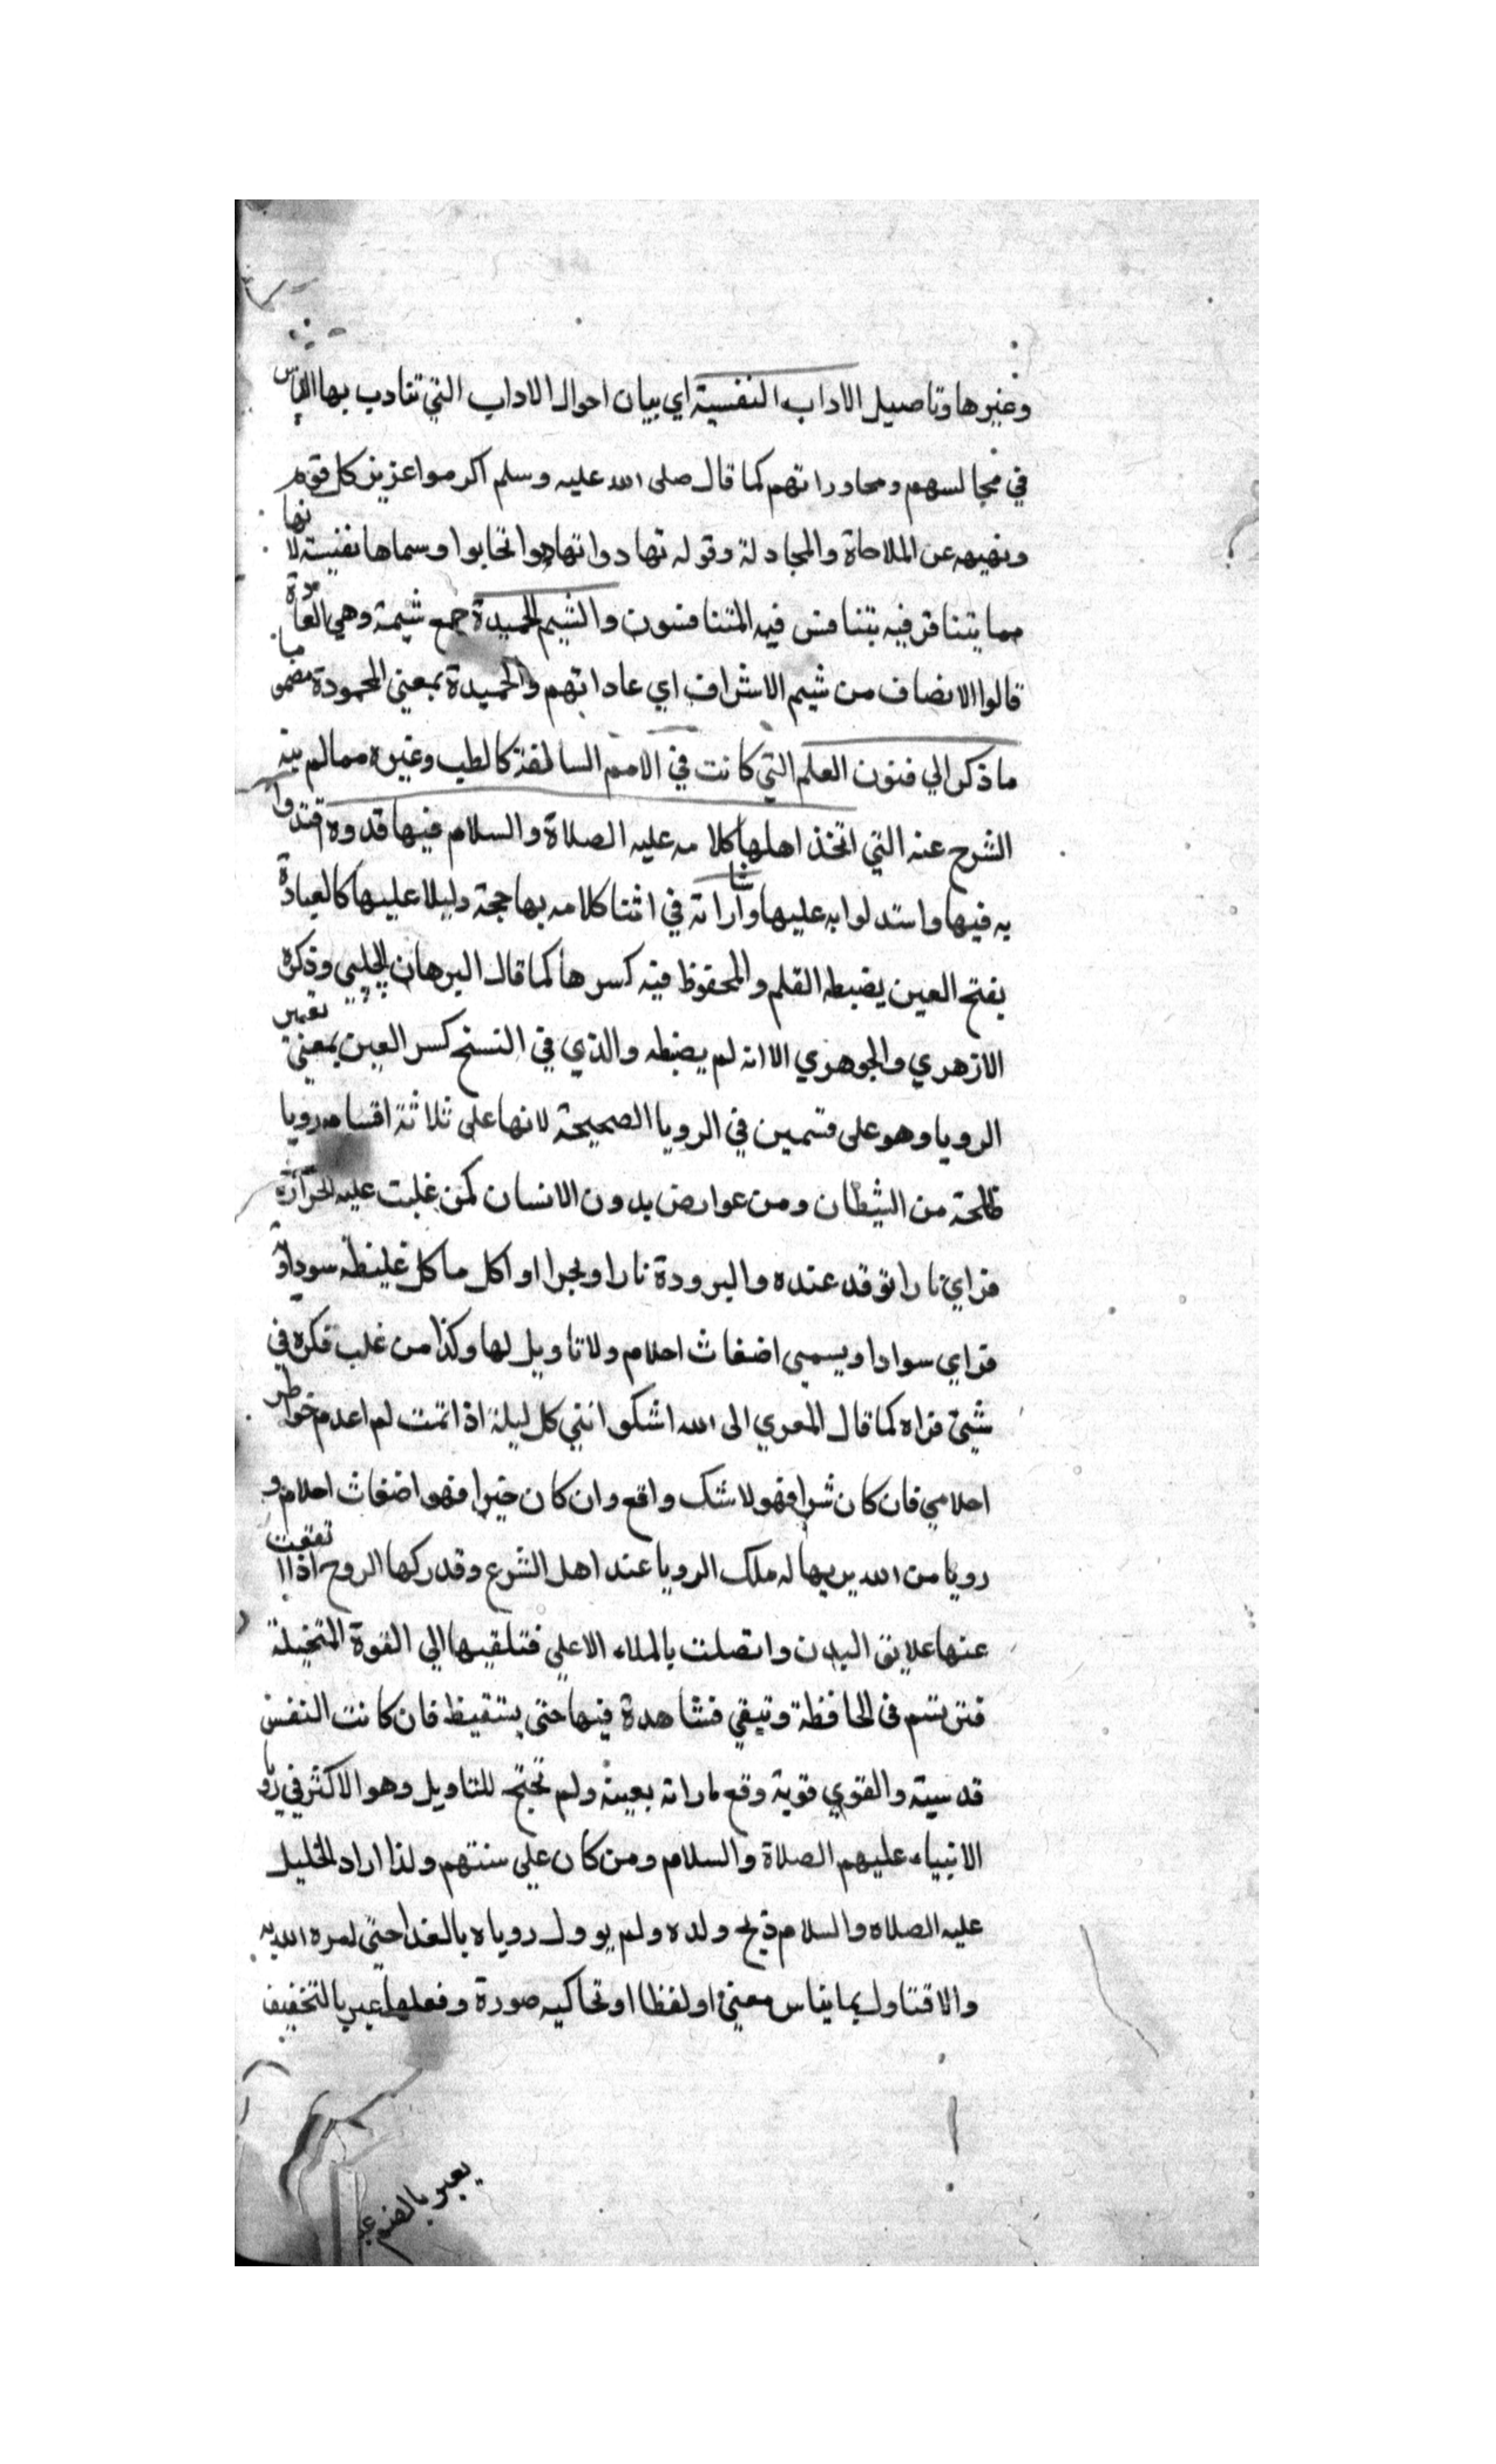 وغيرها وتاصيل الاداب النفسية اي بيان احوال الاداب التي تتادب بها الناس
في مجالسهم ومحاوراتهم كما قال صلى الله عليه وسلم اكرموا عزيز كل قوم
ونهيه عن الملاحاة والمجادلة وقوله تهادوا تهادوا تحابوا وسماها نفيسة لانها
مما يتنافر فيه يتنافس فيه المتنافسون والشيم الحميدة جمع شيمة وهي العادة
قالوا الانصاف من شيم الاشراف اي عاداتهم والحميدة بمعني المحمودة مضموما
ما ذكر الي فنون العلم التي كانت في الامم السالفة كالطب وغيره مما لم ينه
الشرح عنه التي اتخذ اهلها كلامه عليه الصلاة والسلام فيها قدوة اقتدوا
به فيها واستدلوا به عليها واراته في اثنا كلامه بها حجة دليلا عليها كالعبادة
بفتح العين بضبطه القلم والمحفوظ فيه كسرها كما قال البرهان الحلبي وذكره
الازهري والجوهري الا انه لم يضبطه والذي في النسخ كسر العين بمعني تعبير
الرويا وهو على قسمين في الرويا الصحيحة لانها على ثلاثة اقسام رويا
ظلحة من الشيطان ومن عوارض بدون الانسان كمن غلبت عليه الحرارة
فراي نارا توقد عنده والبرودة نارا وبحرا او اكل ماكل غليظه سوداوية
فراي سوادا ويسمى اضغاث احلام ولا تاويل لها وكذا من غلب فكره في
شيئ فراه كما قال المعري الى الله اشكو انني كل ليلة اذا نمت لم اعدم خواطر
احلامي فان كان شرا فهو لا شك واقع وان كان خيرا فهو اضغاث احلام و
رويا من الله يريها له ملك الرويا عند اهل الشرع وقد ركها الروح اذا
عنها علايق البدن واتصلت بالملاء الاعلي فتلقيها الي القوة المتخيلة
فترتسم في الحافظة وتبقي فشاهدة فيها حتى يستقيظ فان كانت النفس
قدسية والقوي قوية وقع ماراته بعينه ولم تحتج للتاويل وهو الاكثر في رؤ
الانبياء عليهم الصلاة والسلام ومن كان علي سنتهم ولذا اراد الخليل
عليه الصلاه والسلام ذبح ولده ولم يوول روياه بالفدا حتى امره الله به
والا فتاول بما يناس معني او لفظا او تحاكيه صورة وفعلها عبر بالتخفيف
يعبر بالضم